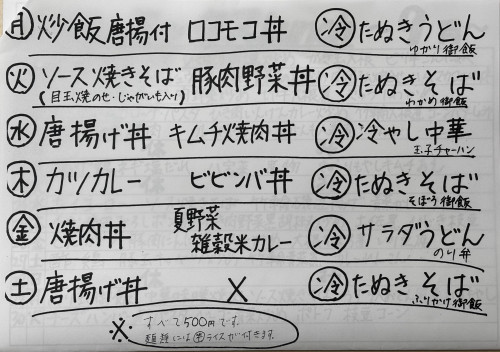 月 炒飯唐揚付 ロコモコ丼 冷 たぬきうどん
ゆかり御飯
火 ソース焼きそば 豚肉野菜丼 冷 たぬきそば
(目玉焼のせ・じゃがいも入り) わかめ御飯
水 唐揚げ丼 キムチ焼肉丼 冷 冷やし中華
玉子チャーハン
木 カツカレー ビビンバ丼 冷 たぬきそば
ごぼう御飯
金 焼肉丼 夏野菜 冷 サラダうどん
雑穀米カレー のり弁
土 唐揚げ丼 × 冷 たぬきそば
ふりかけ御飯
※ すべて500円です。
麺類には小ライスが付きます。